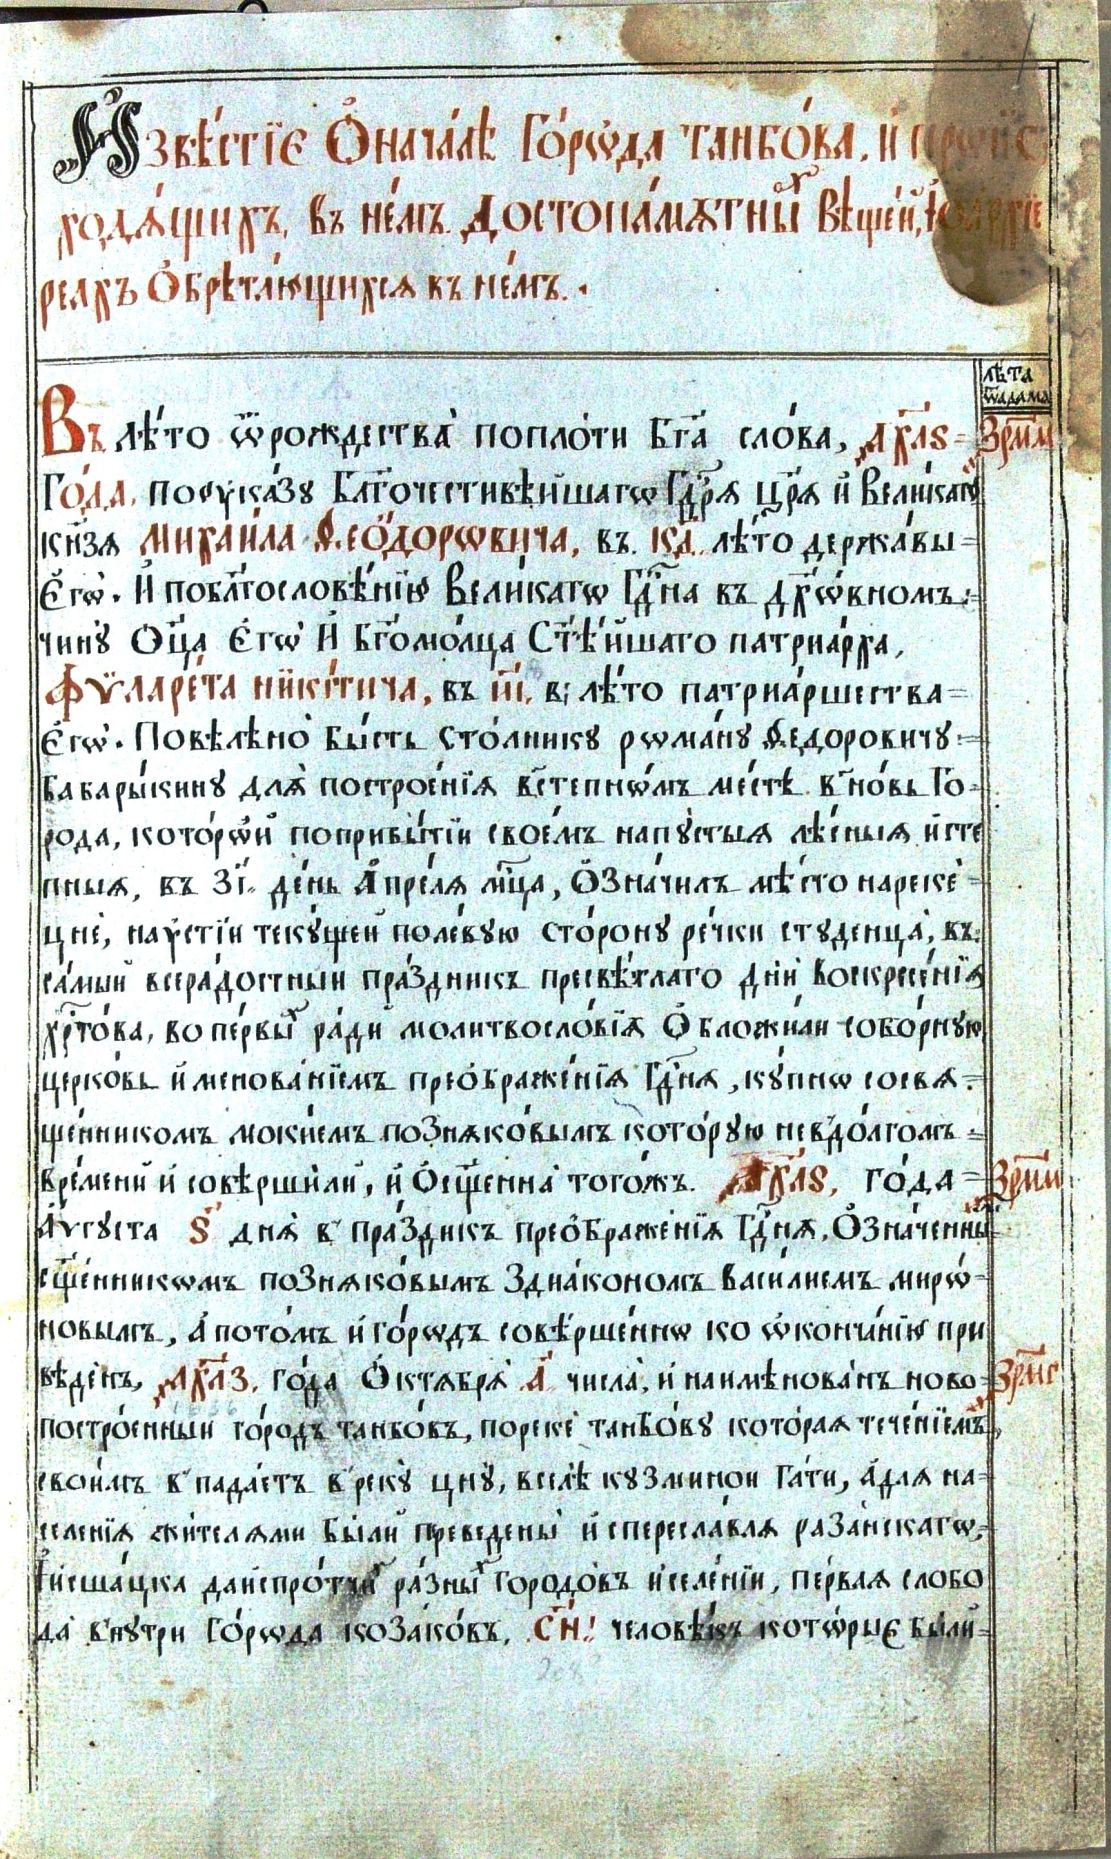 И҆звѣ́стїе Ѻ҆нача́лѣ Го́рѡда танбо́ва, и҆ прѡи҆с
ходѧ́щихъ, въ не́мъ достопа́мѧтны́х вѣще́й, і҆ ѡ҆ архїе
реахъ Ѻ҆брѣта́ющихсѧ въ не́мъ.
лѣ́та
ѿадама
Въ лѣ́то ѿрождества̀ поплоти Бг҃а сло́ва, ҂ахл҃ѕ= ҂зрм҃д
Го́да, поѹ҆ка́зу Бл҃гочестивѣ́йшагѡ Гдⷭ҇рѧ цр҃ѧ и҆ Вели́кагѡ
кн҃зѧ Михаи́ла Ѳео́дорѡвича, въ. кд҃. лѣ́то держа́вы=
Є҆гѡ̀. И҆ побл҃гословѣ́нїю Вели́кагѡ Гдⷭ҇на въ дх҃о́вномъ=
чину̀ Ѻц҃а Є҆гѡ̀ и҆ Бг҃омо́лца Ст҃ѣ́йшаго патриа́рха,
Фѷларе́та ники́тича, въ и҃і, в; лѣ́то патриа́ршества=
Є҆гѡ̀. Повѣлѣно̀ бы́сть сто́лнику рѡма́ну Ѳедоровичу=
бабары́кину длѧ̀ построе́нїѧ встепнѡ́мъ ме́стѣ вно́вь Го=
рода, кото́рѡй поприбы́тїи свое́мъ напꙋсты́ѧ лѣсны́ѧ и҆ сте
пны́ѧ, въ з҃і. де́нь А҆пре́лѧ мц҃а, Ѻ҆зна́чилъ мѣ́сто нарекѐ=
цнѐ, наꙋ́стїи теку́щей поле́вую сто́рону ре́чки студенца̀, въ=
са́мый всера́достный пра́здникъ пресвѣ́тлаго дн҃и воскресе́нїѧ
хрⷭ҇то́ва, во пе́рвых ра́ди молитвосло́вїѧ Ѻ҆бложили собо́рную
це́рковь и҆менова́нїемъ преѡбраже́нїѧ Гдⷭ҇нѧ, ку́пнѡ сосвѧ=
ще́нникомъ мокіемъ познѧко́вымъ кото́рую невдо́лгомъ=
вре́мени и҆ совѣрши́ли, и҆ Ѻ҆сщ҃е́нна того́жъ. ҂ахл҃ѕ, го́да= ҂зрм҃д
А҆ѵгуста ѕ҃ днѧ̀ в пра́здникъ преѡбраже́нїѧ Гдⷭ҇нѧ, Ѻ҆зна́ченным
сщ҃е́нникѡмъ познѧко́вымъ здиа́кономъ василиемъ мирѡ́=
новымъ, а҆ пото́мъ и҆ го́рѡдъ совѣ́ршеннѡ ко ѡ҆конча́нїю при
вѣде́нъ, ҂ахл҃з, го́да Ѻ҆ктѧбрѧ̀ а҃ числа̀, и҆ наимѣнова́нъ ново= ҂зрм҃є
постро́енный го́родъ танбо́въ, порекѐ танбо́ву кото́раѧ тече́нїемъ
свои́мъ в пада́етъ в реку̀ цну̀, вселѣ̀ кузминои га́ти, а҆длѧ на=
селе́нїѧ жи́телѧми бы́ли преведены̀ и҆ спересла́влѧ раза́нскагѡ,=
и҆ сша́цка даиспро́тчих ра́зных городо́въ и҆ селе́нїи, пе́рваѧ слобо
да̀ внутрѝ го́рѡда коза́ковъ, сн҃и! человѣ́къ котѡ́рые бы́ли=